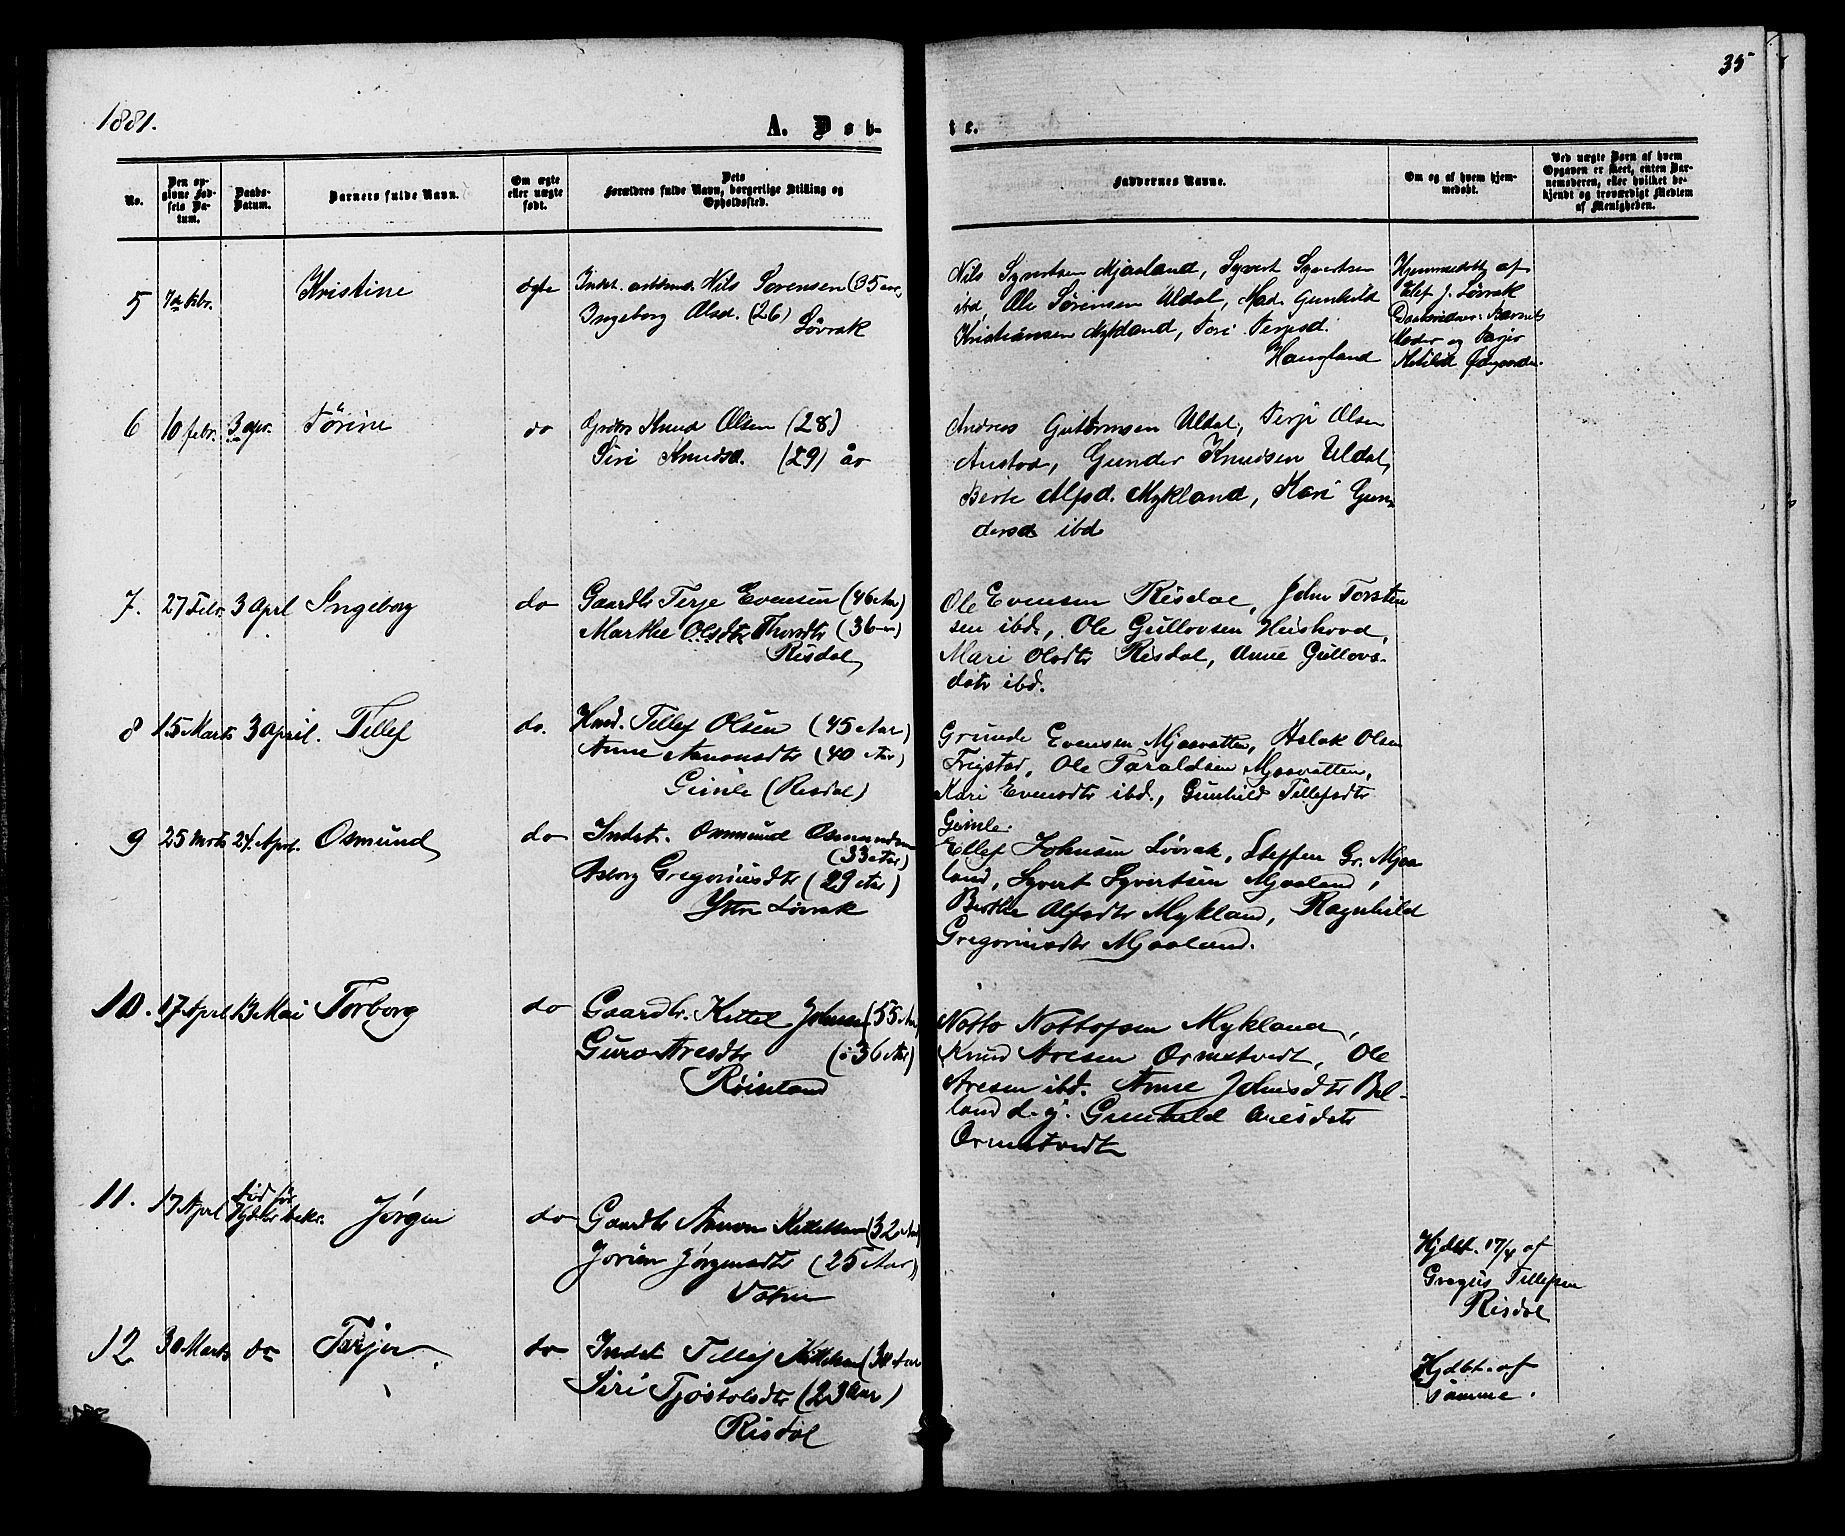 1881.
A. Døb-
te.
35
No.
Den op-
givne Fød-
sels Da-
tum.
Daabs-
Datum.
Barnets fulde Navn.
Om ægte
eller uægte
født.
Dets
Forældres fulde Navn, borgerlige Stilling og
Opholdssted.
Faddernes Navne.
Om og af hvem hjem-
medøbt.
Ved uægte Børn af hvem
Opgaven er skeet, enten Bar-
nemoderen, eller hvilket be-
kjendt og troværdigt Medlem
af Menigheden.
5 Kristine ægte Indst. Nils Sørensen (35
Ingeborg Olsd. (26) Løvrak
Nils Syvertsen Mjaaland, Syvert Syvertsen
ibd, Ole Sørensen Uldal, Mad. Gunhild
Kristiansen Mykland, Tori Terjesd.
Haugland
Hjemmedøbt af
Elef J. Løvrak
Moder og Tarjer
Ketilsd
6 10 febr. 3 apr. Tørine do Knud Olsen (28)
Siri Knudsd. (29) år
Andreas Guttormsen Uldal, Terje Olsen
Austad, Gunder Knudsen Uldal,
Berte Alfsd. Mykland, Kari Gun-
dersd ibd
7. 27 Febr. 3 Aprl Ingeborg do Gaardbr Terje Evensen (46 Aar)
Marthe Olsdtr Thorsdtr (36 —)
Risdal
Ole Evensen Risdal, John Torsten
sen ibd., Ole Gullovsen Heishovd,
Mari Olsdtr Risdal, Anne Gullovs-
datr ibd.
8 15 Marts 3 April. Tellef do. Husd. Tellef Olsen (45 Aar)
Anne Aanonsdtr (40 Aar)
Gimle (Risdal)
Grunde Evensen Mjaavatten, Aslak Olsen
Frigstad, Ole Taraldsen Mjaavatten,
Kari Evensdtr ibd., Gunhild Tellefsdtr
Gimle.
9 25 Mrts 24 Aprl. Osmund do Indst. Osmund Osmundsen
(33 Aar)
Asborg Gregoriusdtr (29 Aar)
Yttre Løvrak
Ellef Johnsen Løvrak, Steffen Gr. Mjaa-
land, Syvert Syvertsen Mjaaland,
Berthe Alfsdtr Mykland, Ragnhild
Gregoriusdtr Mjaaland.
10. 17 Aprl 13 Mai Torborg do Gaardbr. Kittel Johnsen (55 Aar
Guro Aresdtr (36 Aar)
Røinland
Notto Nottolfsen Mykland,
Knud Aresen Ormstvedt, Ole
Aresen ibd. Anne Johnsdtr Bel-
land d. y. Gunhild Aresdatr
Ormstvedt
11. 17 Aprl Jørgen do Gaardbr Aanon Kittelsen (32 Aar)
Jorien Jørgensdtr (25 Aar)
Vatne
Hjdbt. 17/4 af
Gregus Tellefsen
Risdal
12 30 Marts do Tarjer do Indst Tellef Kittelsen (30 Aar
Siri Tjøstolsdtr (23 Aar)
Risdal
Hjdbt. af
samme.